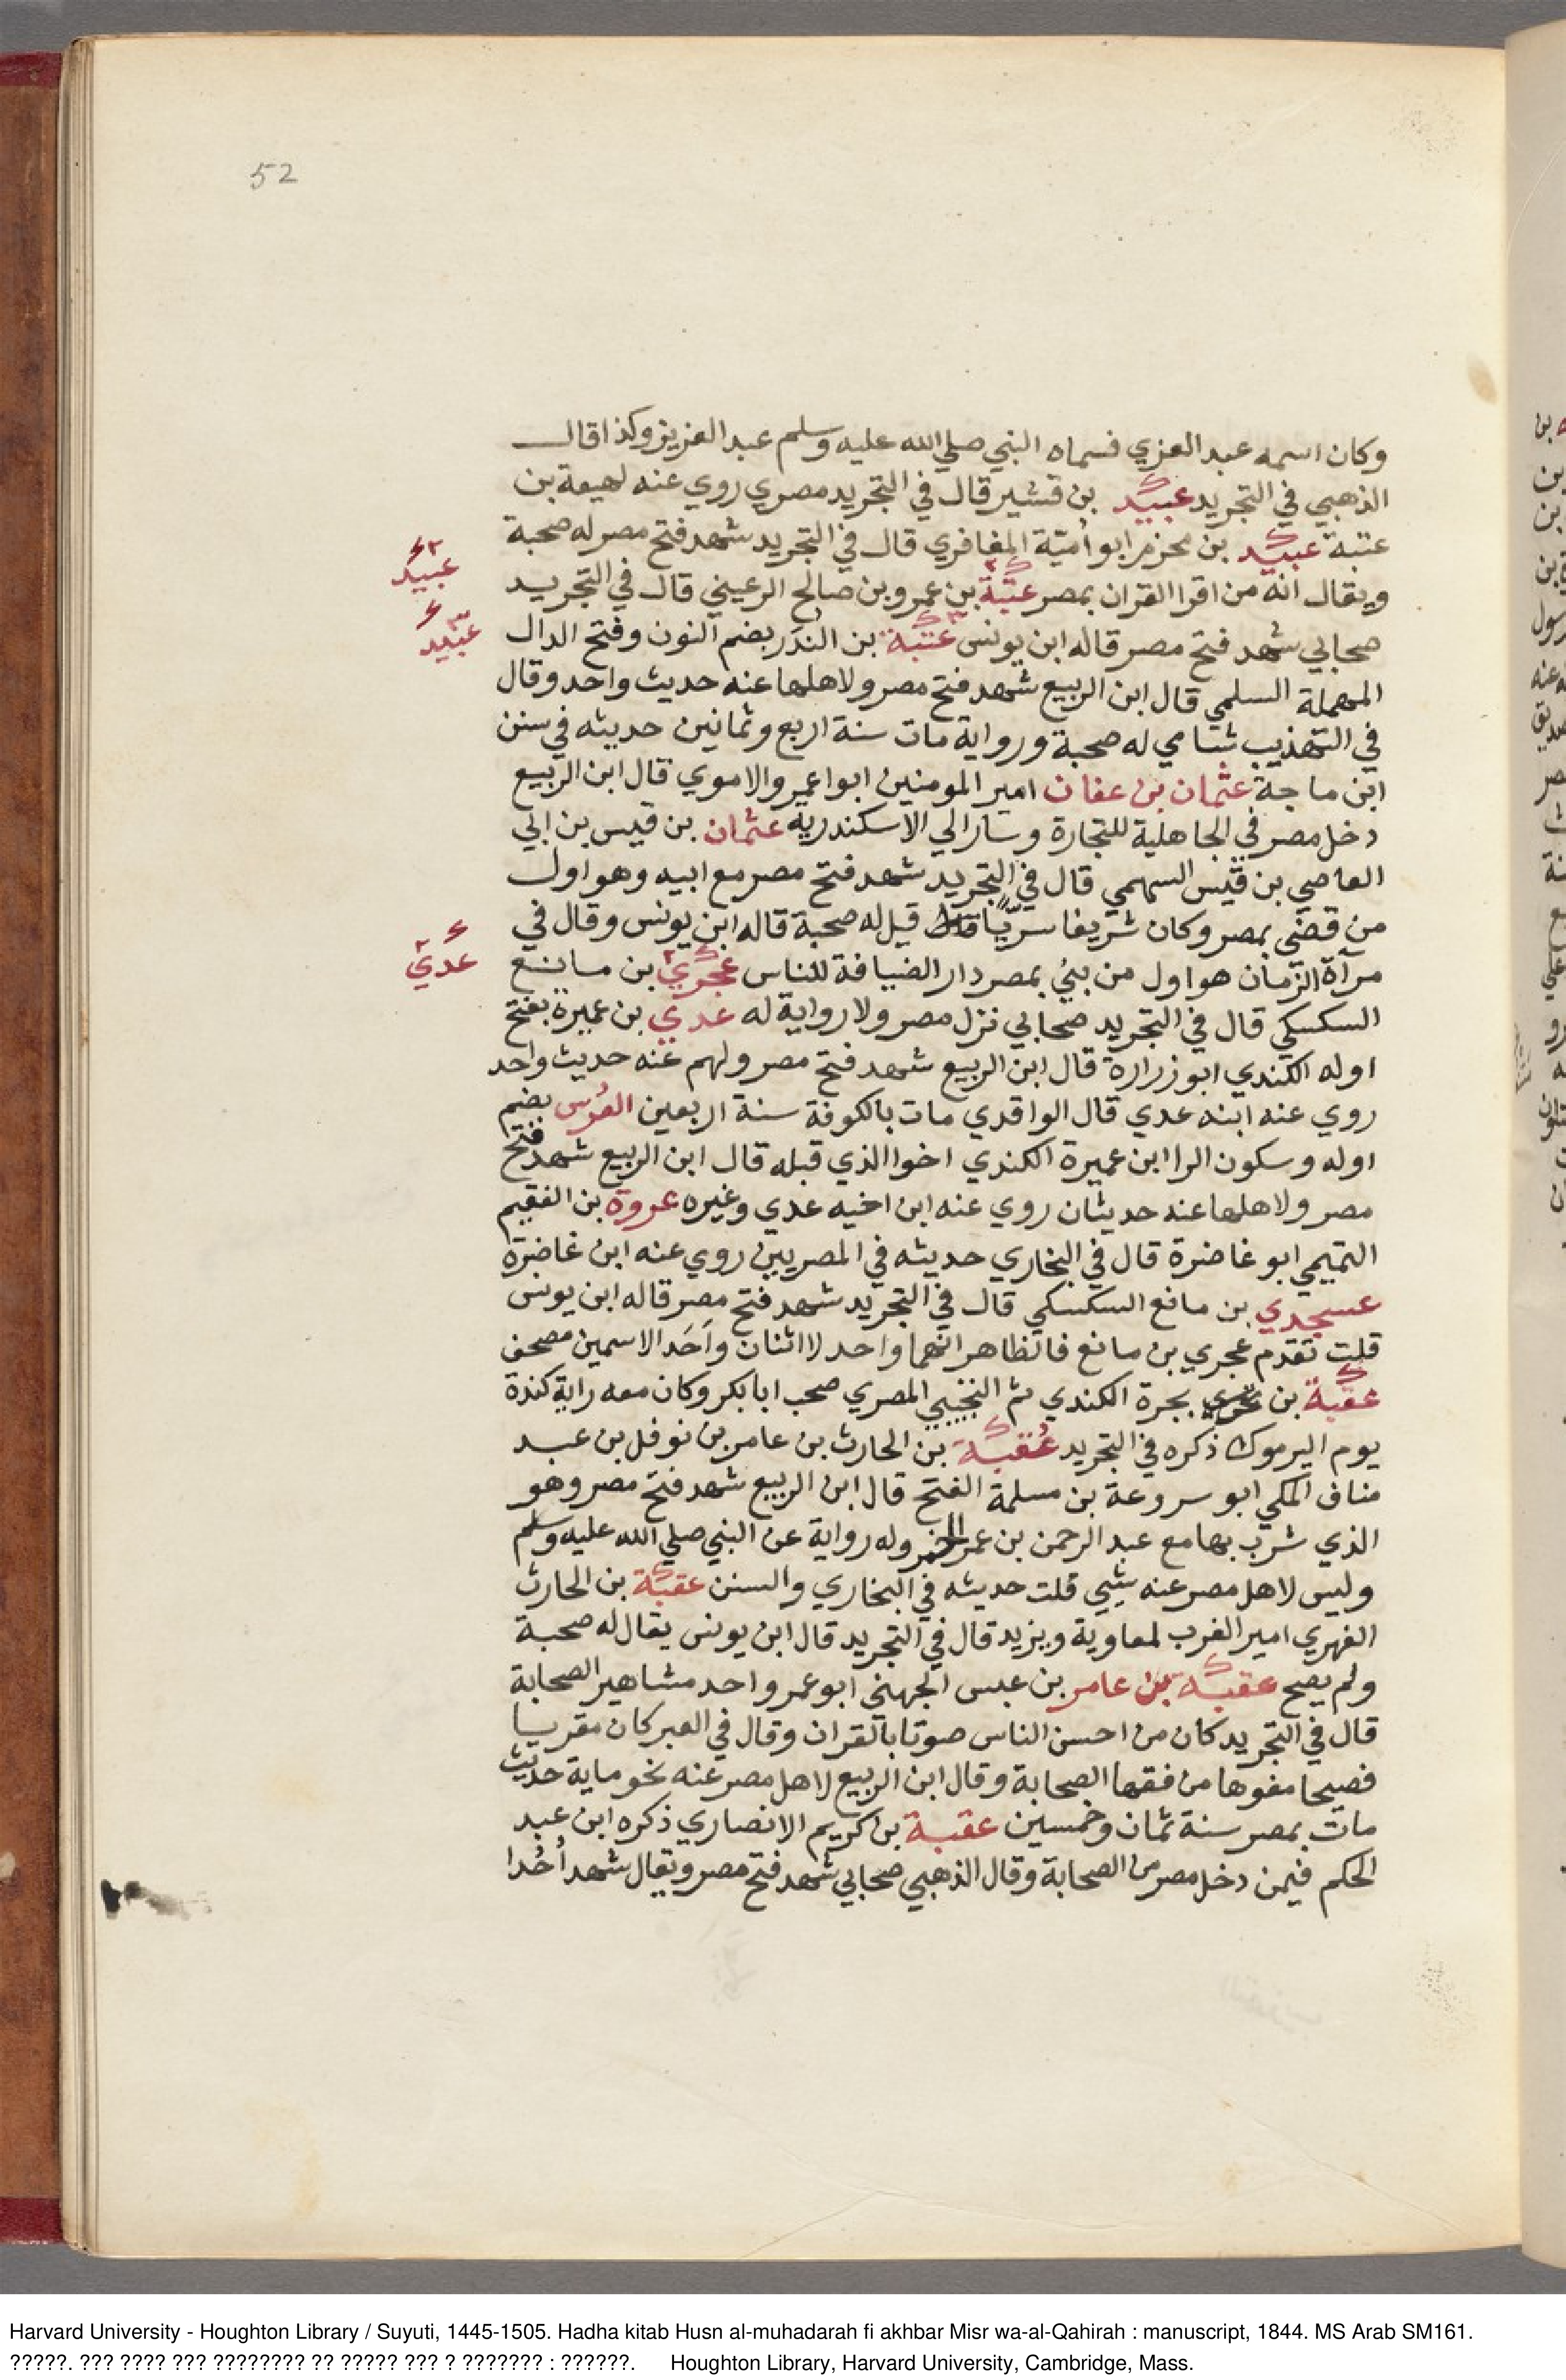 52
وكان اسمه عبد العزي فسماه النبي صلي الله عليه وسلم عبد العزيز وكذا قال
الذهبي في التجريد عبيد بن قشير قال في التجريد مصري روي عنه لهيعة بن
عتبة عبيد بن محزم ابو أمية المغافري قال في التجريد شهد فتح مصر له صحبة
عبيد
ويقال انه من اقرا القران بمصر عتبة بن عمرو بن صالح الرعيني قال في التجريد
عبيد
صحابي شهد فتح مصر قاله ابن يونس عتبة بن الندر بضم النون وفتح الدال
المهملة السلمي قال ابن الربيع شهد فتح مصر ولاهلها عنه حديث واحد وقال
في التهذيب شامي له صحبة ورواية مات سنة اربع وثمانين حديثه في سنن
ابن ماجة عثمان بن عفان امير المومنين ابوا عمير والاموي قال ابن الربيع
دخل مصر في الجاهلية للتجارة وسار الي الاسكندرية عثمان بن قيس بن ابي
العاصي بن قيس السهمي قال في التجريد شهد فتح مصر مع ابيه وهو اول
من قضي بمصر وكان شريفا سريا قيل له صحبة قاله ابن يونس وقال في
مرآة الزمان هو اول من بني بمصر دار الضيافة للناس عجري بن مانع
عدي
السكسكي قال في التجريد صحابي نزل مصر ولا رواية له عدي بن عميرة بفتح
اوله الكندي ابو زرارة قال ابن الربيع شهد فتح مصر ولهم عنه حديث واحد
روي عنه ابنه عدي قال الواقدي مات بالكوفة سنة اربعين العُرس بضم
اوله وسكون الرا ابن عميرة الكندي اخوا الذي قبله قال ابن الربيع شهد فتح
مصر ولاهلها عنه حديثان روي عنه ابن اخيه عدي وغيره عروة بن الفقيم
التميمي ابو غاضرة قال في البخاري حديثه في المصريين روي عنه ابن غاضرة
عسجدي بن مانع السكسكي قال في التجريد شهد فتح مصر قاله ابن يونس
قلت تقدم عجري بن مانع فالظاهر انهما واحد لا اثنان وأحد الاسمين مصحف
عقبة بن بجرة الكندي ثم التجيبي المصري صحب ابا بكر وكان معه راية كندة
يوم اليرموك ذكره في التجريد عُقبة بن الحارث بن عامر بن نوفل بن عبد
مناف المكي ابو سروعة بن مسلمة الفتح قال ابن الربيع شهد فتح مصر وهو
الذي شرب بها مع عبد الرحمن بن عمر الخمر وله رواية عن النبي صلي الله عليه وسلم
وليس لاهل مصر عنه شيي قلت حديثه في البخاري والسنن عقبة بن الحارث
الفهري امير الغرب لمعاوية ويزيد قال في التجريد قال ابن يونس يقال له صحبة
ولم يصح عقبة بن عامر بن عبس الجهني ابو عمر واحد مشاهير الصحابة
قال في التجريد كان من احسن الناس صوتا بالقران وقال في العبر كان مقريا
فصيحا مفوها من فقها الصحابة وقال ابن الربيع لاهل مصر عنه نحو ماية حديث
مات بمصر سنة ثمان وخمسين عقبة بن كريم الانصاري ذكره ابن عبد
الحكم فيمن دخل مصر من الصحابة وقال الذهبي صحابي شهد فتح مصر ويقال شهد أحُدا
Harvard University - Houghton Library / Suyuti, 1445-1505. Hadha kitab Husn al-muhadarah fi akhbar Misr wa-al-Qahirah : manuscript, 1844. MS Arab SM161.
?????. ??? ???? ??? ???????? ?? ????? ??? ? ??????? : ??????. Houghton Library, Harvard University, Cambridge, Mass.